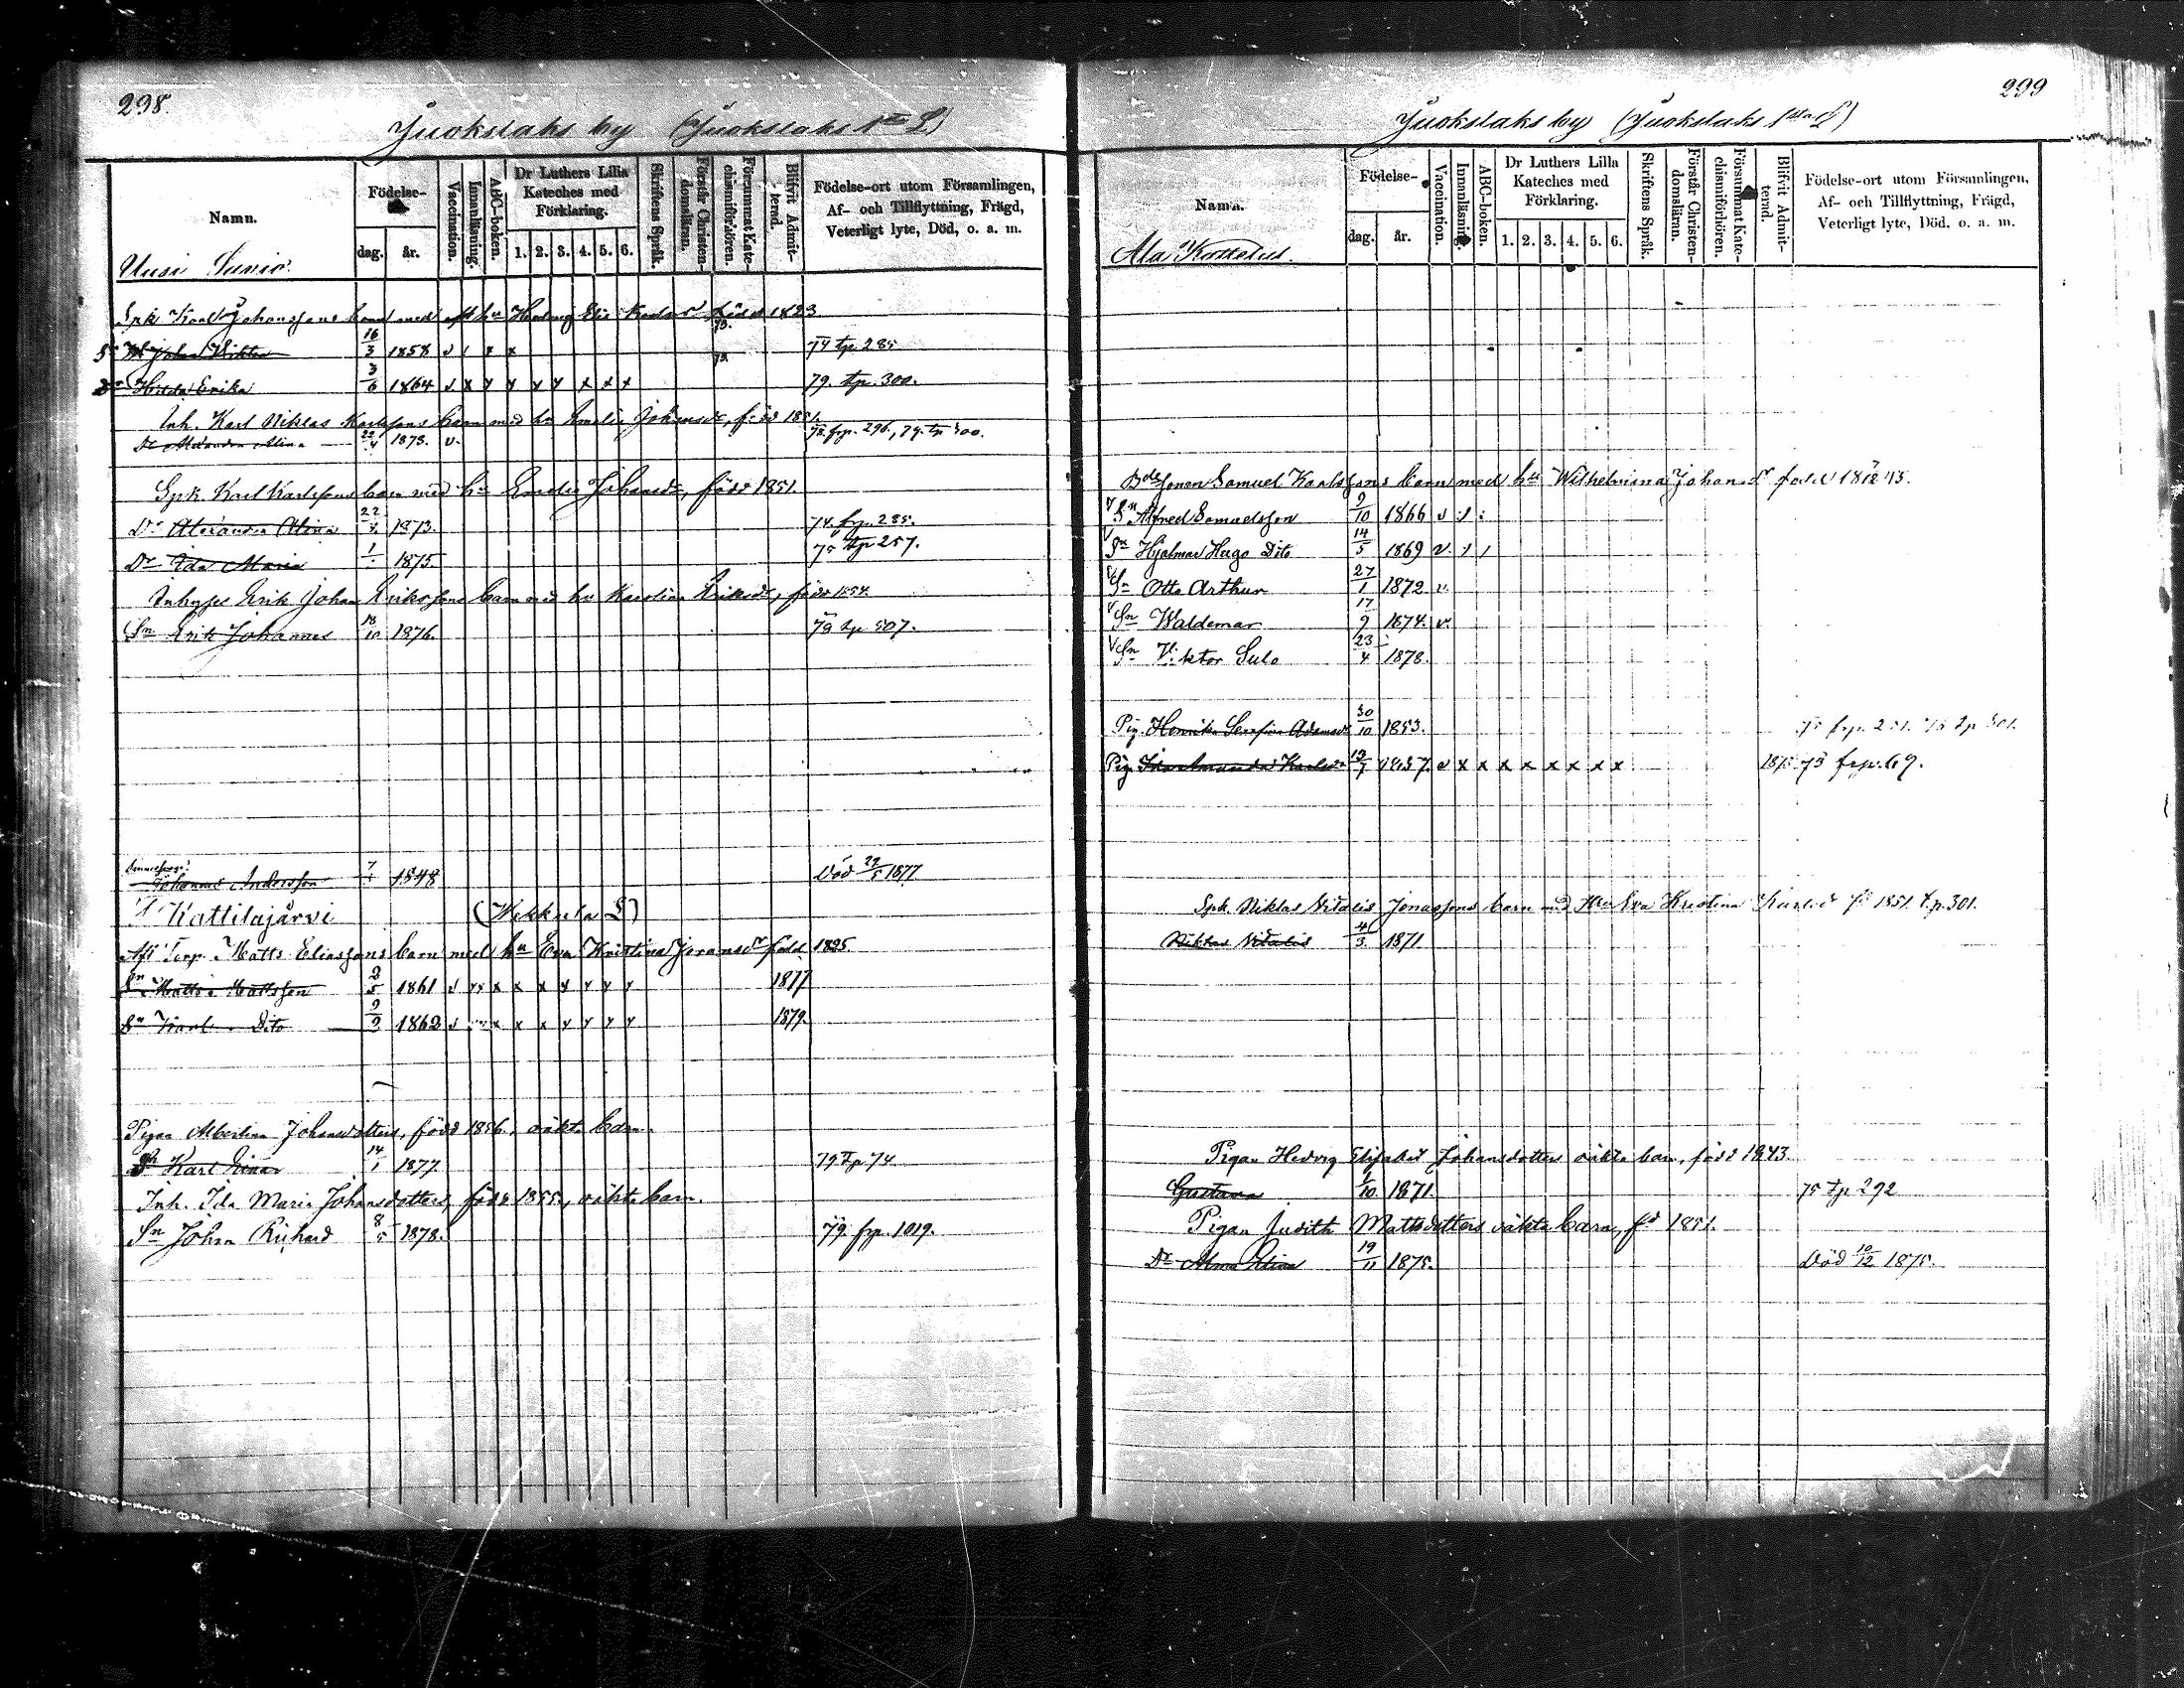 298.
Juokslaks by (Juokslaks 1sta L)
Namn.
Födelse-
dag.
år.
Vaccination.
Innanläsning.
ABC-boken.
Dr Luthers Lilla Kateches med Förklaring.
1. 2. 3. 4. 5. 6.
Skriftens Språk.
Förstår Christen-domsläran.
Försummat Kate-chismiförhören.
Blifvit Admit-terad.
Födelse-ort utom Församlingen, Af- och Tillflyttning, Frägd, Veterligt lyte, Död, o. a. m.
Uusi Suvio.
Spk Karl Johanssons barn med hu Hedvig född 1823
Sn Johan Viktor 16/3 1858 v 1 x x 74 tp. 285
Dr Hilda Erika 3/6 1864 v x y y x y x x x 79. tp. 300.
Inh. Karl Niklas Karlssons barn med hu Amalia Johansdr, född 1851.
Dr Alexandra Alina 22/4 1873. v. 78. frp. 296., 79. tp 300.
Spk. Karl Karlssons barn med hu Emelie Johansdr, född 1851.
Dr Alexandra Alina 22/4 1873. 74. frp. 285.
Dr Ida Maria 1/1 1875. 75 tp 257.
Inhyses Erik Johan Erikssons barn med hu Karolina Eriksdr, född 1854.
Sn Erik Johannes 18/10 1876. 78 tp. 507.
Johannes Andersson 7/1 1848 Död 29/5 1877
Kattilajärvi (Wekkula L)
Afl Torp. Matts Eliassons barn med hu Eva Kristina Joransdr född 1825
Sn Matts Mattsson 2/5 1861 v xx x x x y y y y 1877
Sn Karl Dito 9/9 1862 v x x x y y y y 1879.
Pigan Albertina Johansdotters, född 1856, oäkta barn.
Sn Karl Einar 14/1 1877 79 Tp 74.
Inh. Ida Maria Johansdotters, född 1855, oäkta barn.
Sn Johan Richard 8/5 1878. 79. frp. 1019.
299
Juokslaks by (Juokslaks 1sta L)
Namn.
Födelse-
dag.
år.
Vaccination.
Innanläsning.
ABC-boken.
Dr Luthers Lilla Kateches med Förklaring.
1. 2. 3. 4. 5. 6.
Skriftens Språk.
Förstår Christen-domsläran.
Försummat Kate-chismiförhören.
Blifvit Admit-terad.
Födelse-ort utom Församlingen, Af- och Tillflyttning, Frägd, Veterligt lyte, Död, o. a. m.
Ala Kattelus.
Bdesonen Samuel Karlssons barn med hu Wilhelmina Johansdr född
Sn Alfred Samuelsson 9/10 1866 v 1 :
Sn Hjalmar Hugo Dito 14/5 1869 v. 1 1
Sn Otto Arthur 27/1 1872 v.
Sn Waldemar 17/9 1874. v.
Sn Viktor Sulo 23/4 1878.
Pig. Henrika Serafina Adamsdr 30/10 1853. 75 frp. 251. 75 tp 301.
Pig. Karlsdr 13/7 1857. v x x x x x x x x 1875 73 frp. 69.
Spk. Niklas Vitalis Jonassons barn med Hu Eva Kristina Karlsdr fd 1851. t.p. 301.
Niklas Vitalis 4/3 1871
Pigan Hedvig Elisabet Johansdotters oäkta barn, född 1843
Gustava 1/10 1871. 75 tp 292
Pigan Judith Mattsdotters oäkta barn, fd 1851.
Dr Alma Elina 19/11 1875. Död 10/12 1875.